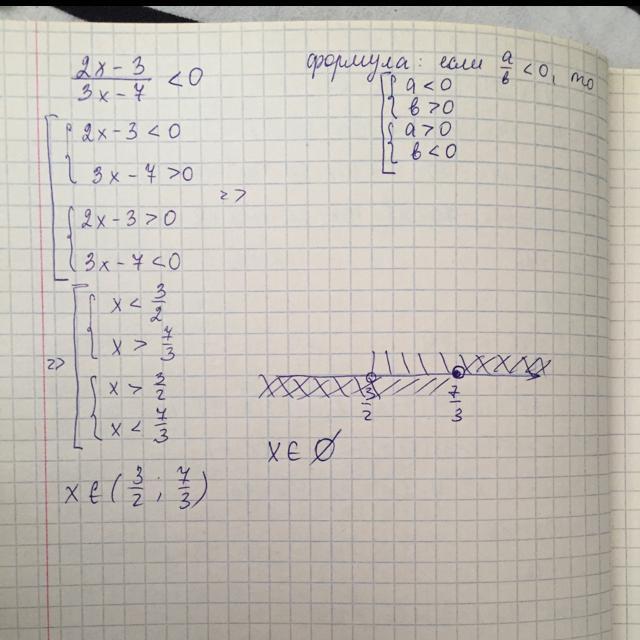 2x - 3 / 3x - 7 < 0
формула: если a/b < 0, то
a < 0
b > 0
a > 0
b < 0
2x - 3 < 0
3x - 7 > 0
=>
2x - 3 > 0
3x - 7 < 0
=>
x < 3/2
x > 7/3
x > 3/2
x < 7/3
3/2
7/3
x ∈ ∅
x ∈ ( 3/2 ; 7/3 )